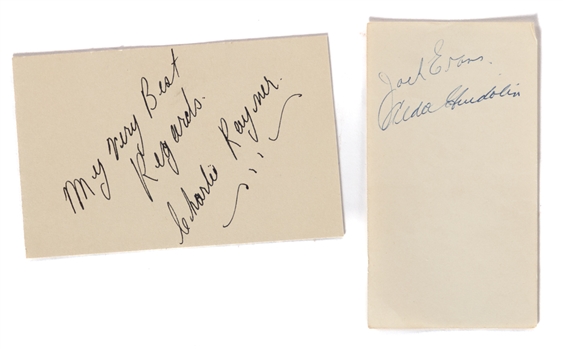 My Very Best
Regards.
Charlie Rayner.
Jack Evans.
Aldo Guidolin